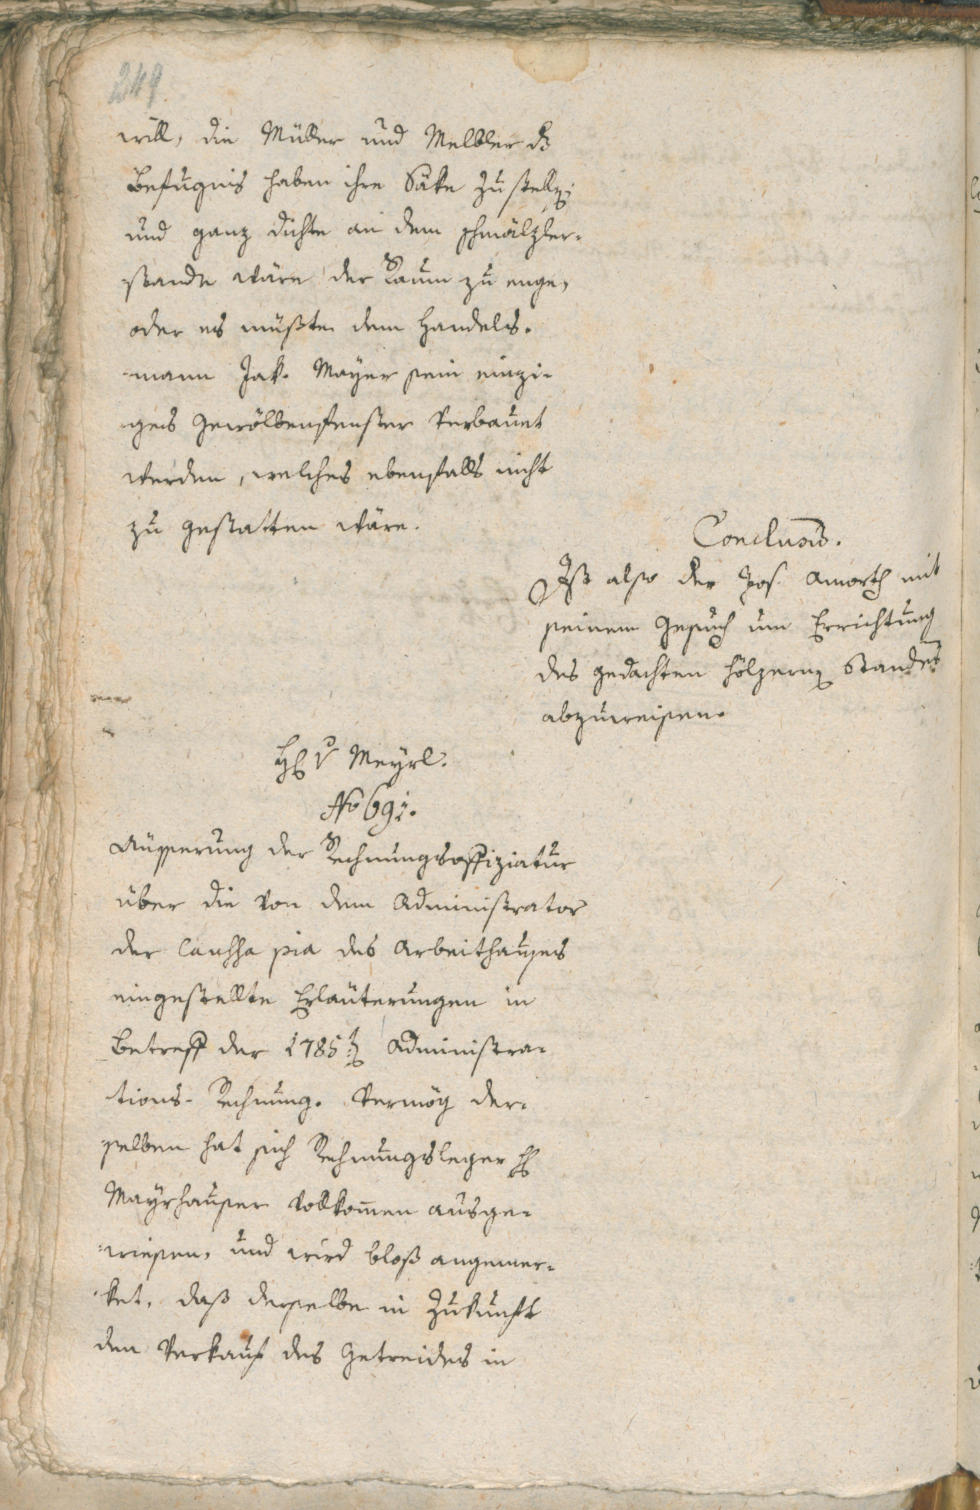 249
will, die Müller und Melbler die
Befugnis haben ihre Säke zustelln;
und ganz dichte an dem schmälzler-
stande wäre der Raum zu enge,
oder es müßte dem Handels-
mann Jak. Mayer sein einzi-
ges Gewölbenfenster verbauet
werden, welches ebenfalls nicht
zu gestatten wäre.
Conclusum.
Ist also der Jos. Amorth mit
seinem Gesuch um Errichtung
des gedachten hölzern Standes
abzuweisen.
H v Meyrl.
No 691.
Äusserung der Rechnungsoffiziatur
über die von dem Administrator
der Caussa pia des Arbeithauses
eingestellte Erläuterungen in
Betreff der 1785 Administra-
tions-Rechnung. Vermög der-
selben hat sich Rechnungsleger H
Mayrhauser vollkom̄en ausge-
wiesen, und wird bloß angemer-
ket, daß derselbe in Zukunft
den Verkauf des Getreides in